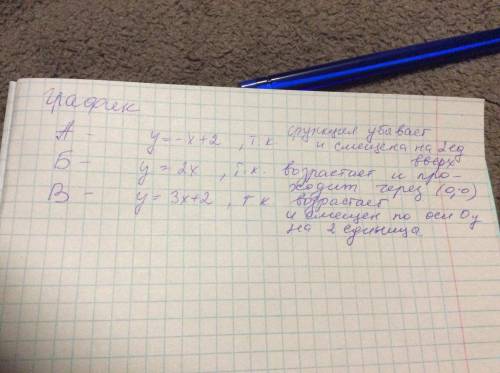 График
А - y = -x+2, т.к. функция убывает
и смещена на 2 ед
вверх
Б - y = 2x, т.к. возрастает и про-
В - y = 3x+2, т к ходит через (0;0)
возрастает
и смещен по оси Оу
на 2 единица